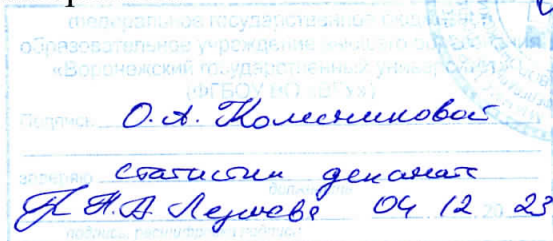 федеральное государственное бюджетное
образовательное учреждение высшего образования
«Воронежский государственный университет»
(ФГБОУ ВО «ВГУ»)
Подпись О.А. Колесниковой
статистик деканат
должность
Н.А. 04 12 20 23
подпись, расшифровка подписи